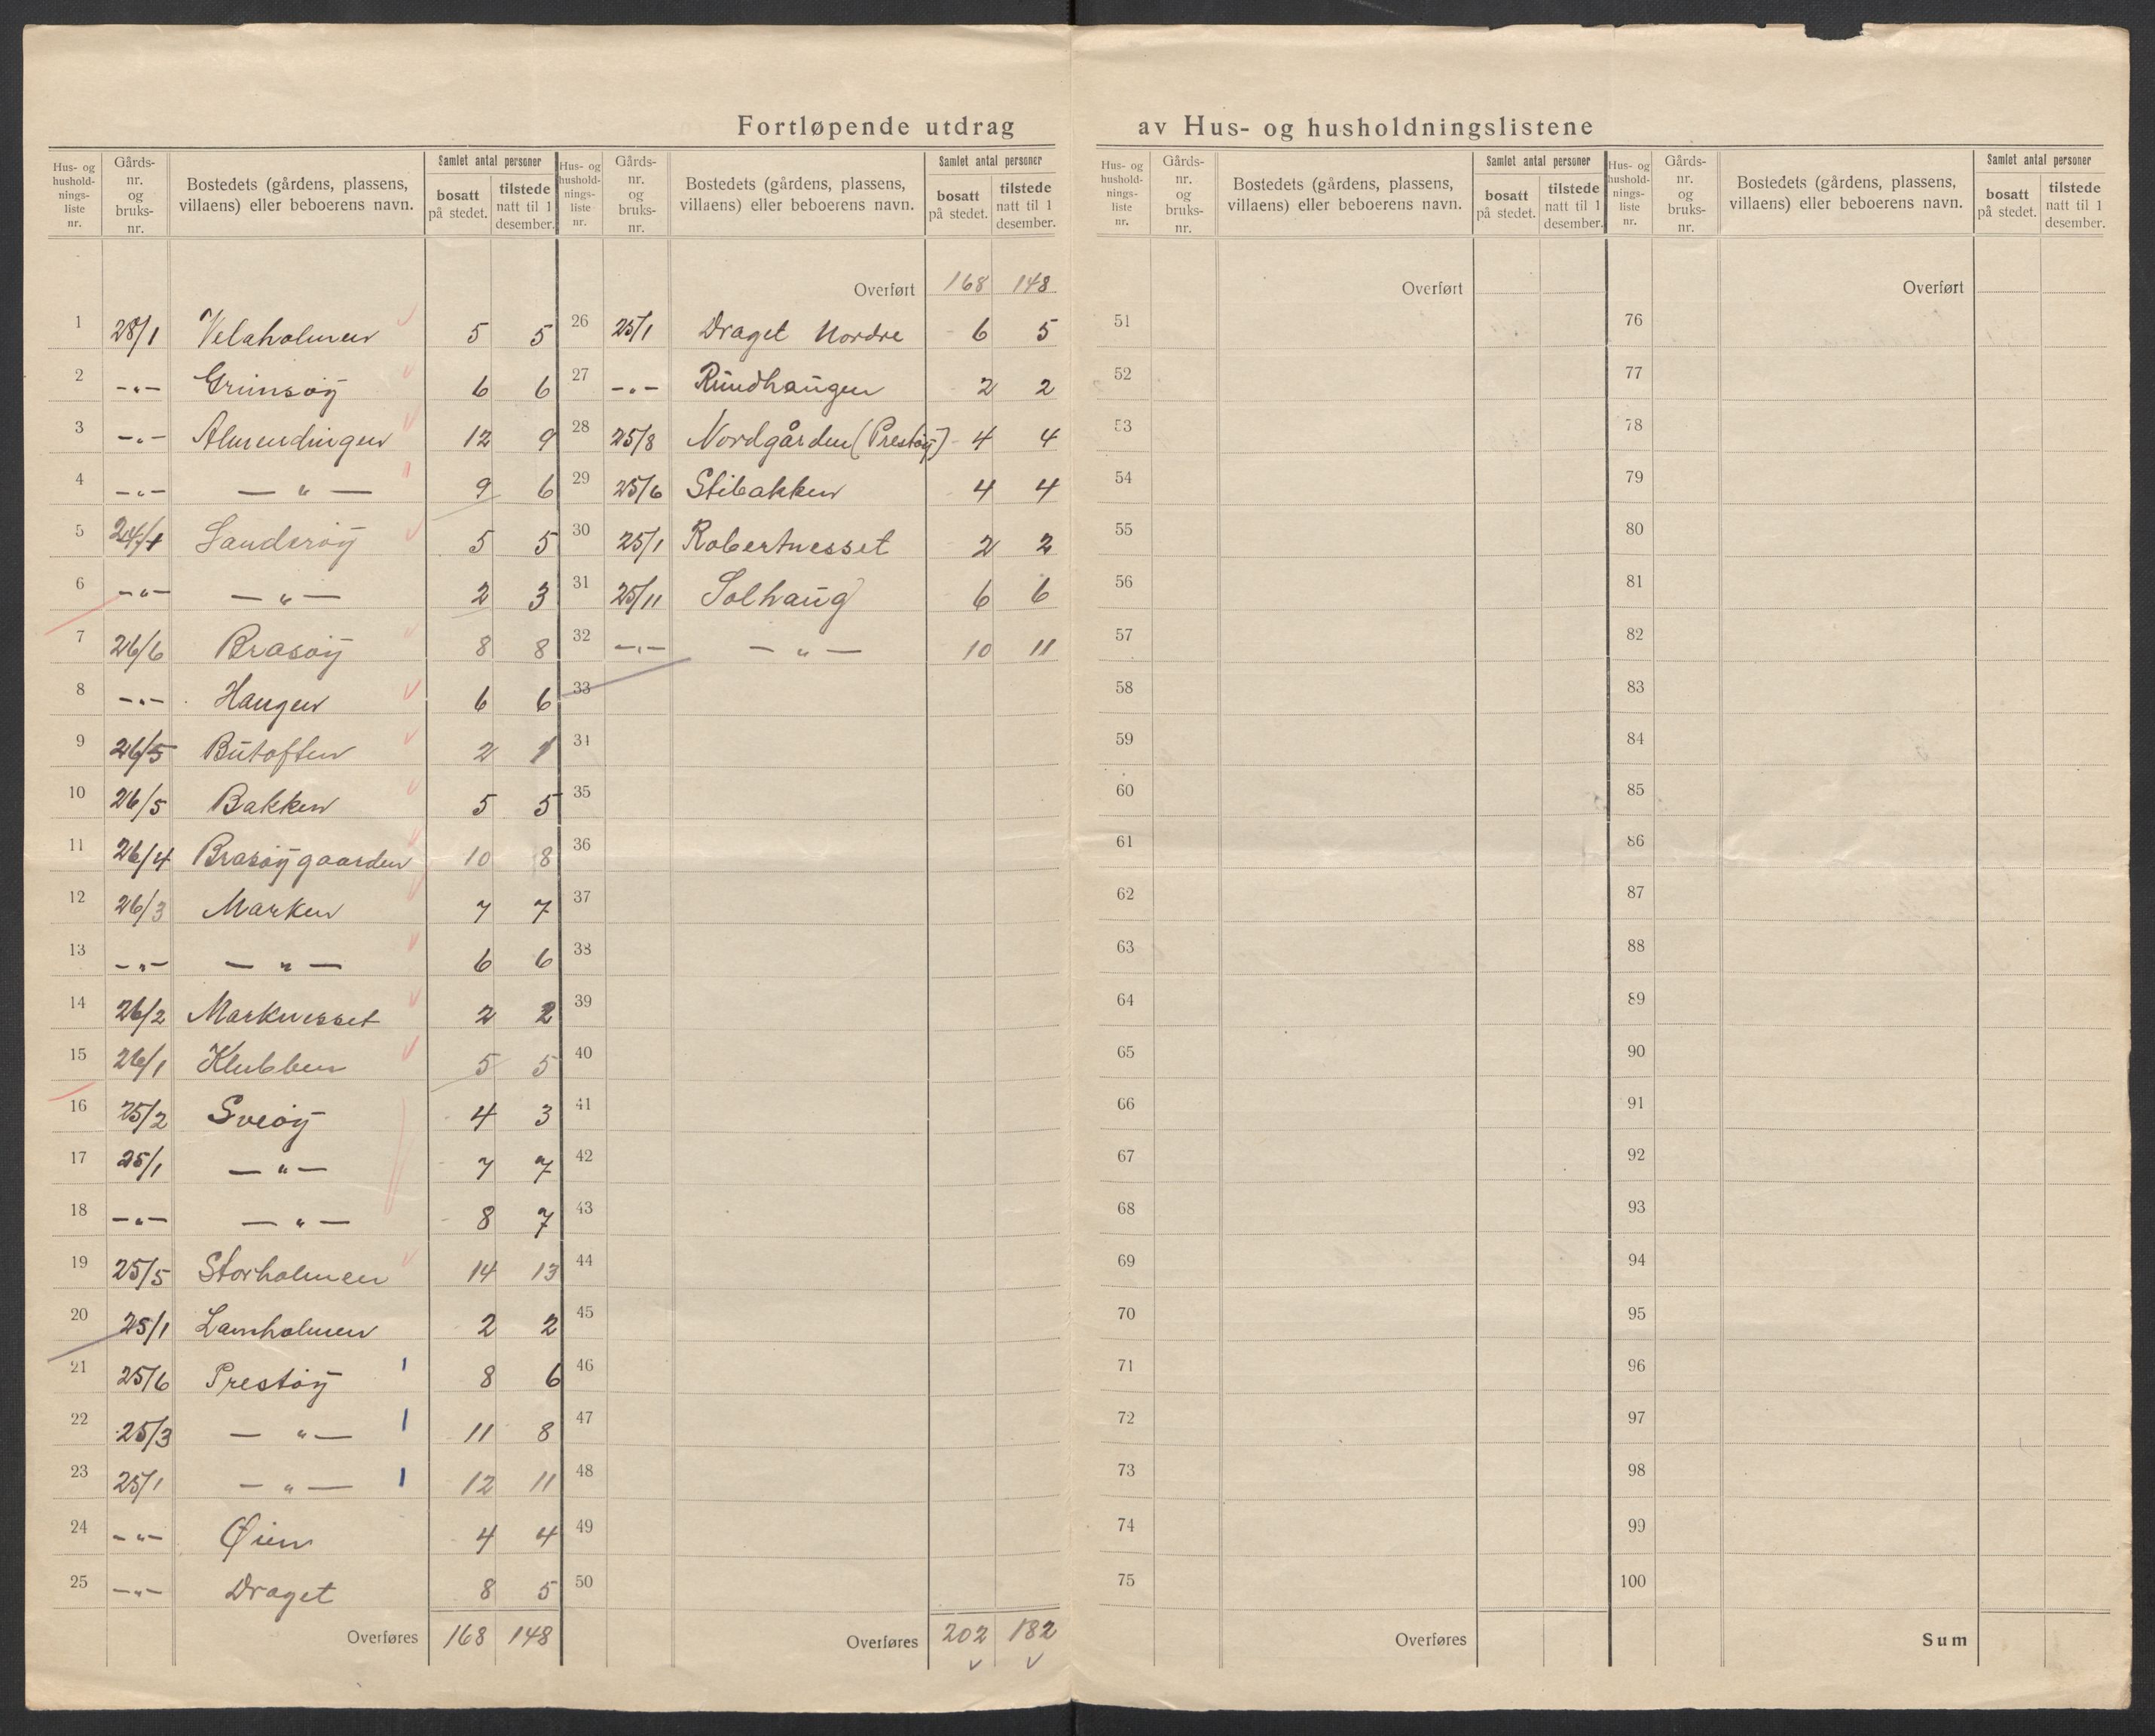 Fortløpende utdrag av Hus- og husholdningslistene
Hus- og hushold- nings- liste nr. | Gårds- nr. og bruks- nr. | Bostedets (gårdens, plassens, villaens) eller beboerens navn. | Samlet antal personer | bosatt på stedet. | tilstede natt til 1 desember.
1 28/1 Velaholmen 5 5
2 -"- Grimsöy 6 6
3 -"- Almendingen 12 9
4 -"- — " — 9 6
5 24/1 Sanderöy 5 5
6 -"- — " — 2 3
7 26/6 Brasöy 8 8
8 -"- Haugen 6 6
9 26/5 Butoften 2 1
10 26/5 Bakken 5 5
11 26/4 Brasöygaarden 10 8
12 26/3 Marken 7 7
13 -"- — " — 6 6
14 26/2 Marknesset 2 2
15 26/1 Klubben 5 5
16 25/2 Sveöy 4 3
17 25/1 — " — 7 7
18 -"- — " — 8 7
19 25/5 Storholmen 14 13
20 25/1 Lamholmen 2 2
21 25/6 Prestöy 8 6
22 25/3 — " — 11 8
23 25/1 — " — 12 11
24 -"- Øien 4 4
25 -"- Draget 8 5
Overføres 168 148
Hus- og hushold- nings- liste nr. | Gårds- nr. og bruks- nr. | Bostedets (gårdens, plassens, villaens) eller beboerens navn. | Samlet antal personer | bosatt på stedet. | tilstede natt til 1 desember.
Overført 168 148
26 25/1 Draget Nordre 6 5
27 -"- Rundhaugen 2 2
28 25/8 Nordgården (Prestöy) 4 4
29 25/6 Stibakken 4 4
30 25/1 Robertnesset 2 2
31 25/11 Solhaug 6 6
32 -"- — " — 10 11
33
34
35
36
37
38
39
40
41
42
43
44
45
46
47
48
49
50
Overføres 202 182
Hus- og hushold- nings- liste nr. | Gårds- nr. og bruks- nr. | Bostedets (gårdens, plassens, villaens) eller beboerens navn. | Samlet antal personer | bosatt på stedet. | tilstede natt til 1 desember.
Overført
51
52
53
54
55
56
57
58
59
60
61
62
63
64
65
66
67
68
69
70
71
72
73
74
75
Overføres
Hus- og hushold- nings- liste nr. | Gårds- nr. og bruks- nr. | Bostedets (gårdens, plassens, villaens) eller beboerens navn. | Samlet antal personer | bosatt på stedet. | tilstede natt til 1 desember.
Overført
76
77
78
79
80
81
82
83
84
85
86
87
88
89
90
91
92
93
94
95
96
97
98
99
100
Sum